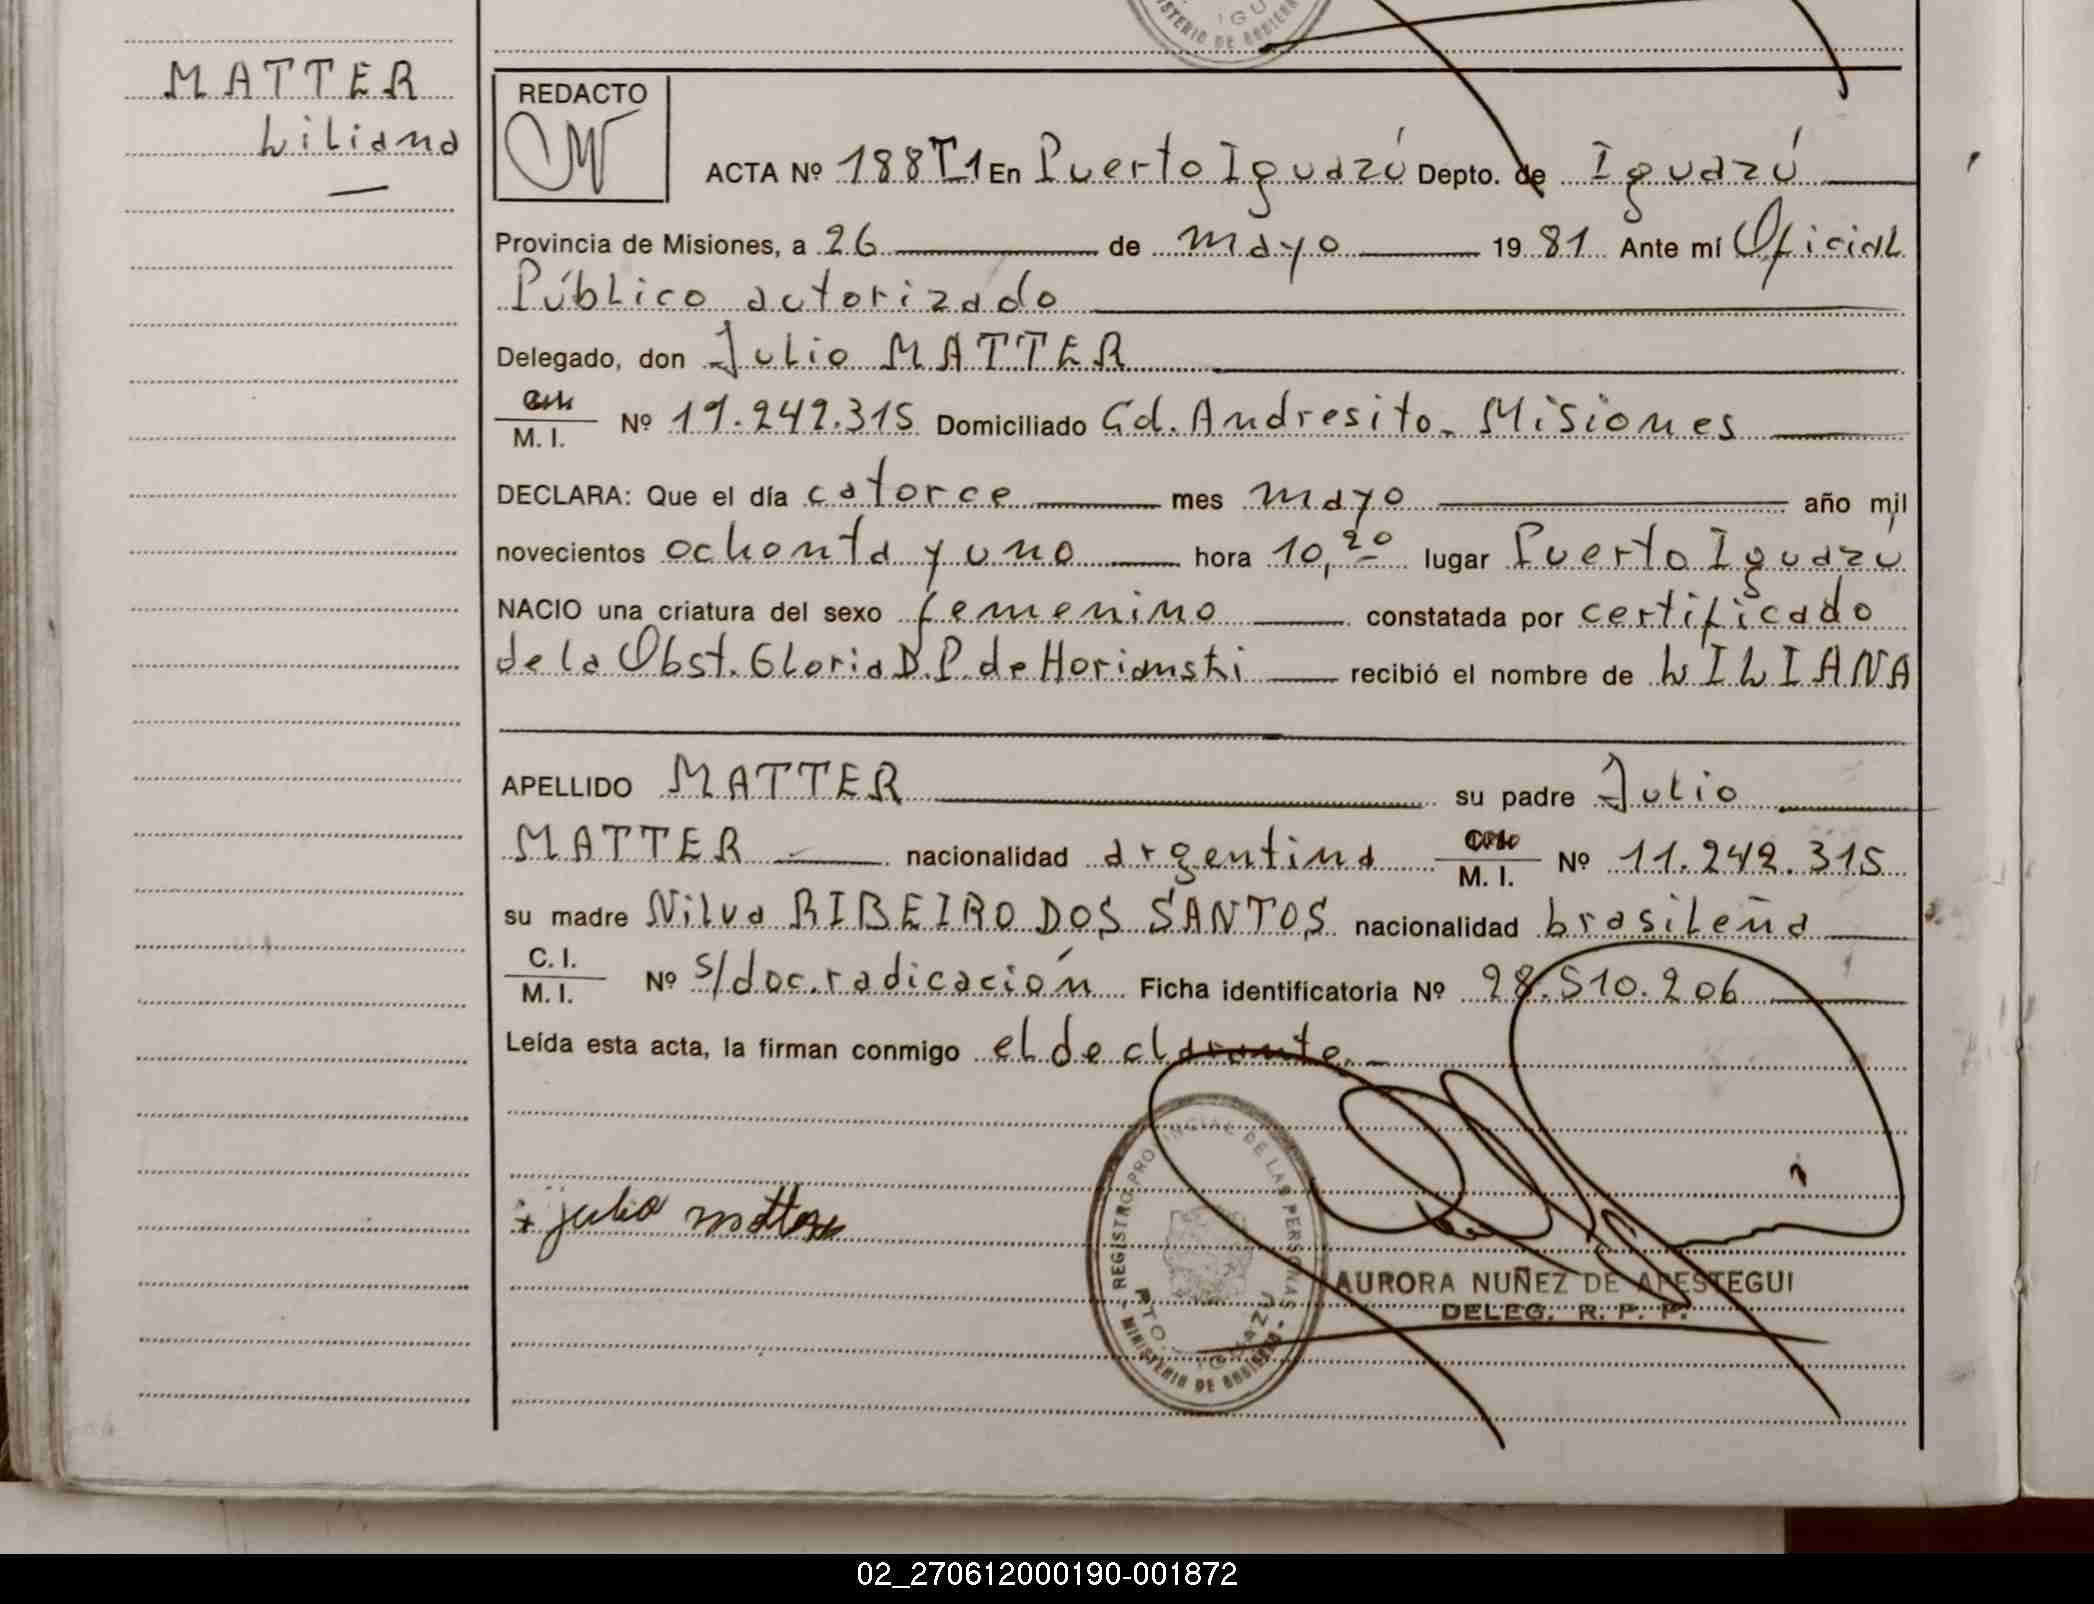 MATTER
Liliana
REDACTO
ACTA Nº 188T1 En Puerto Iguazú Depto. de Iguazú
Provincia de Misiones, a 26 de mayo 1981 Ante mí Oficial
Público autorizado
Delegado, don Julio MATTER
M. I. Nº 11.242.315 Domiciliado Cd. Andresito - Misiones
DECLARA: Que el día catorce mes mayo año mil
novecientos ochenta y uno hora 10,20 lugar Puerto Iguazú
NACIO una criatura del sexo femenino constatada por certificado
de la Obst. Gloria D. P. de Horianski recibió el nombre de LILIANA
APELLIDO MATTER su padre Julio
MATTER nacionalidad argentina M. I. Nº 11.242.315
su madre Nilva RIBEIRO DOS SANTOS nacionalidad brasileña
C. I.
M. I. Nº s/doc. radicación Ficha identificatoria Nº 28.510.206
Leída esta acta, la firman conmigo el declarante.-
julio matter
REGISTRO PROVINCIAL DE LAS PERSONAS
PTO. IGUAZU
MINISTERIO DE GOBIERNO
AURORA NUÑEZ DE APESTEGUI
DELEG. R. P. P.
02_270612000190-001872